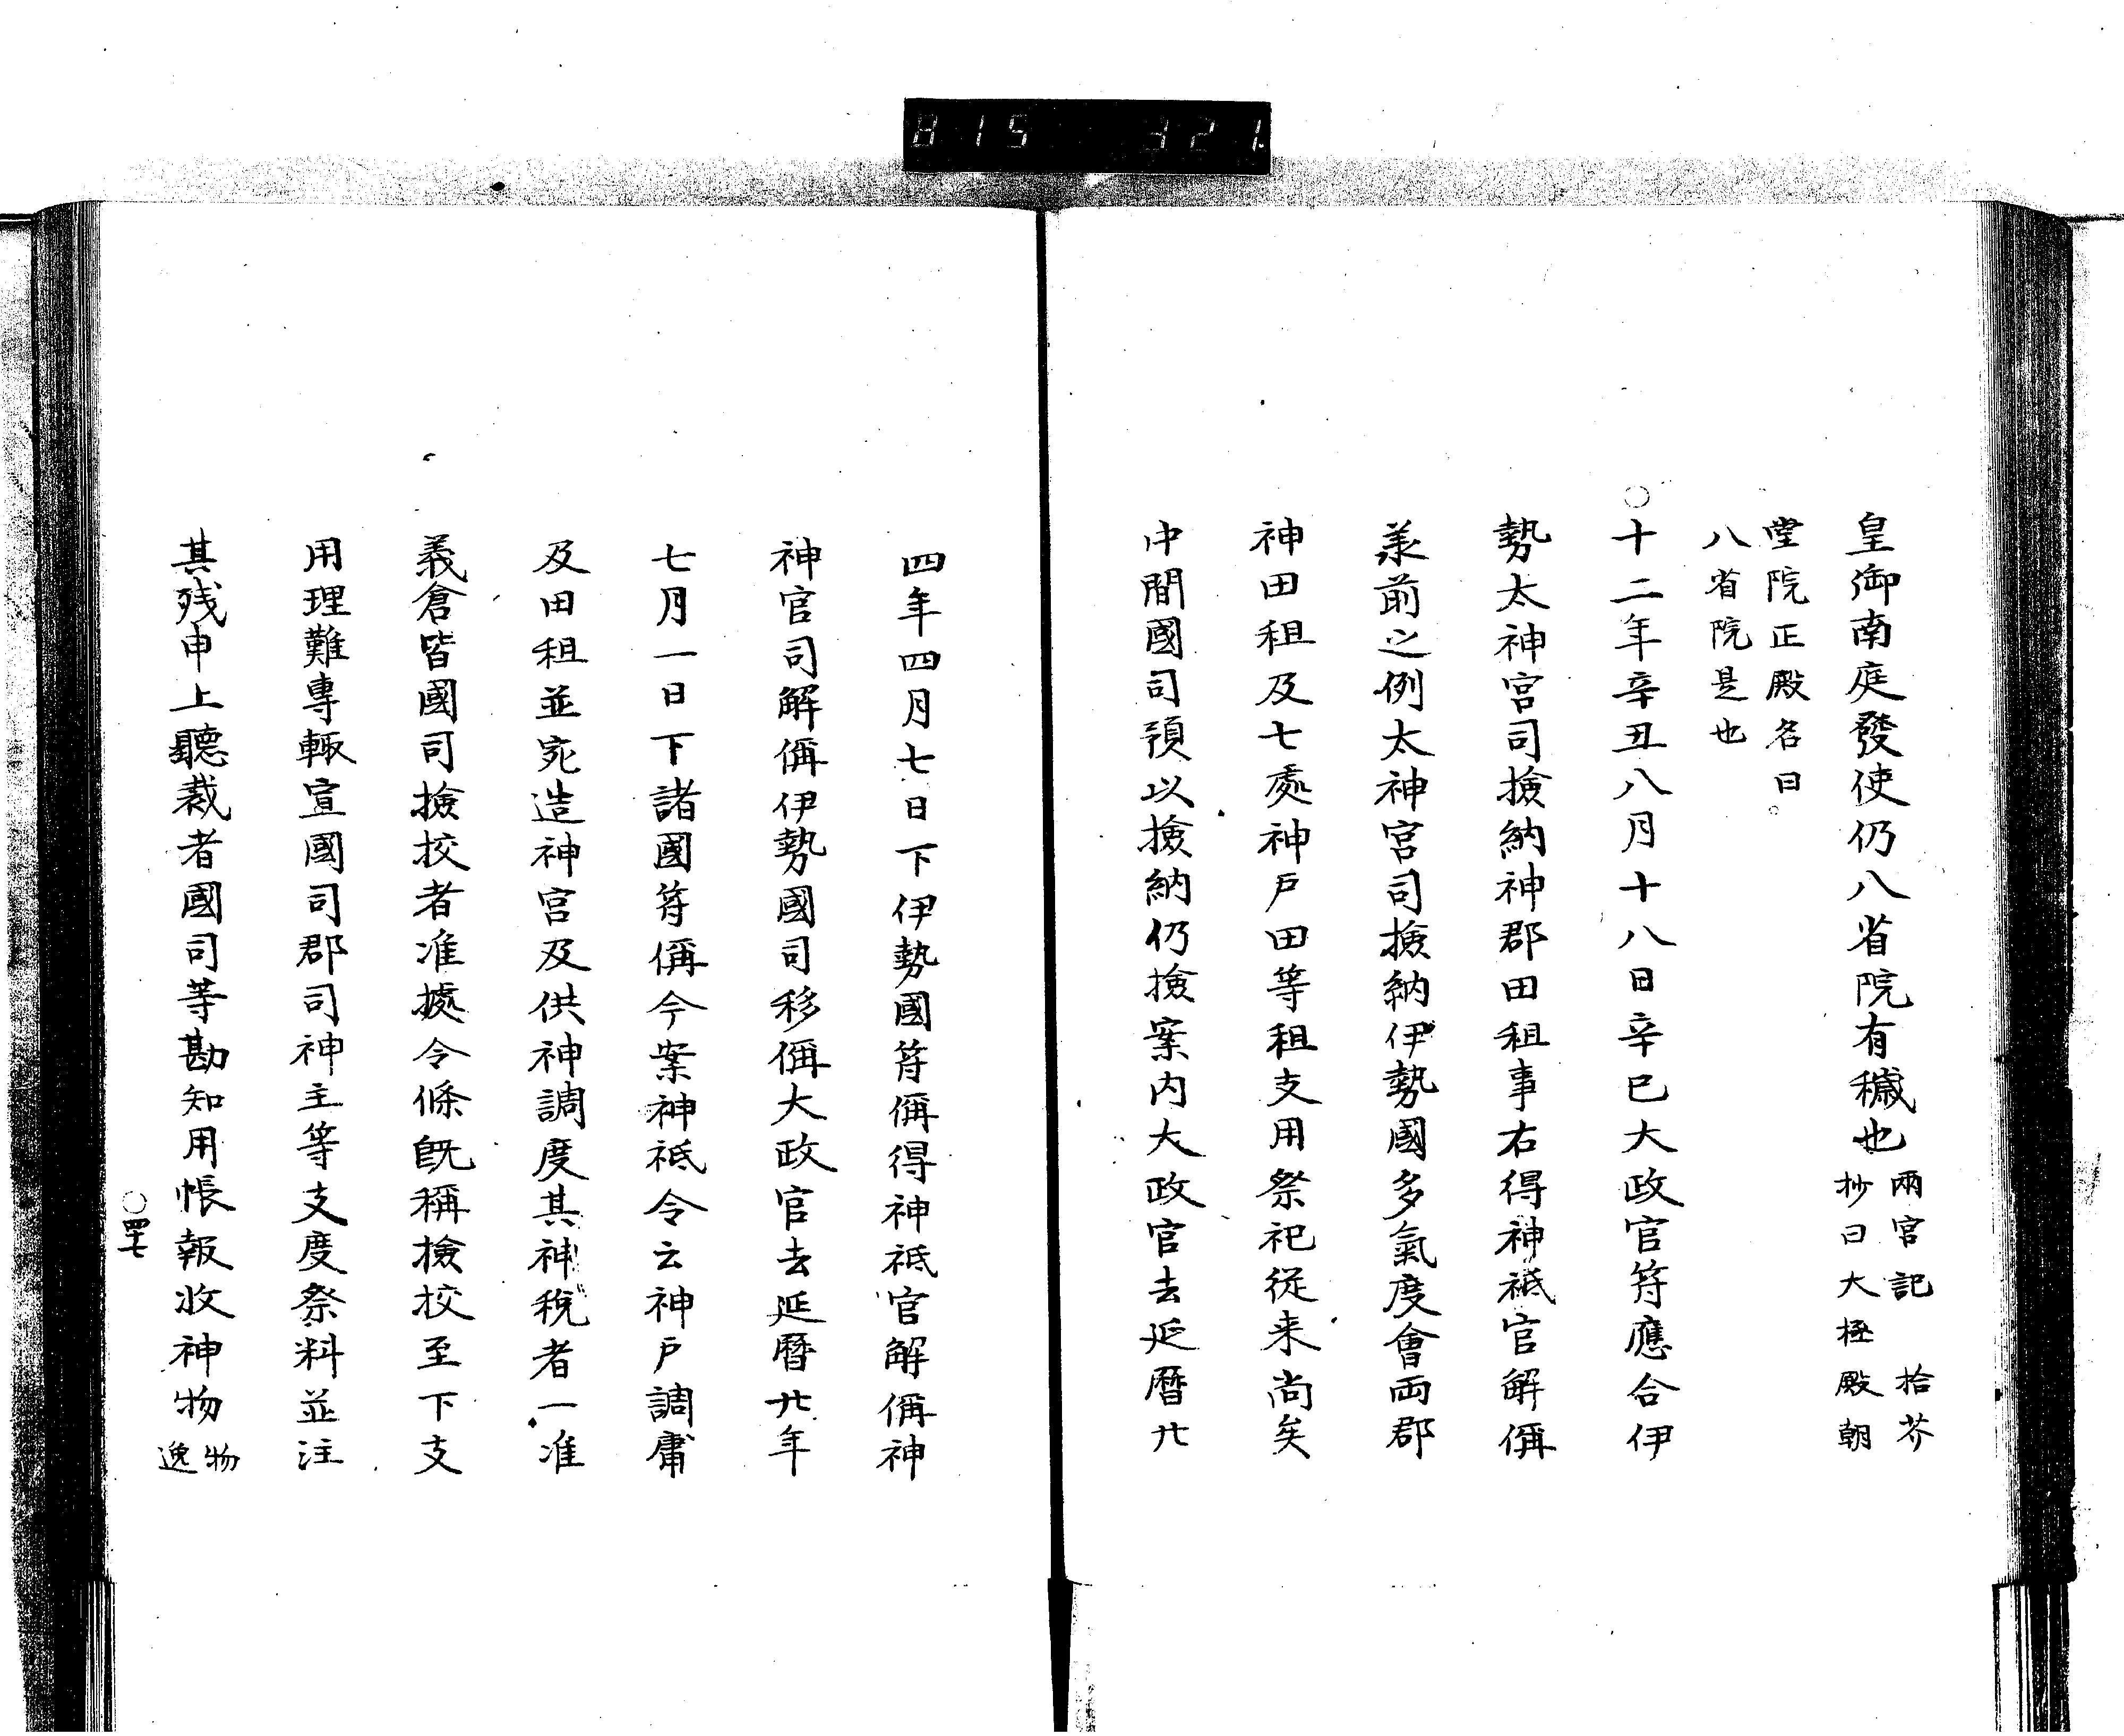 815 321
皇御南庭發使仍八省院有穢也 兩宮記 拾芥
抄曰大極殿朝
堂院正殿名曰
八省院是也
○十二年辛丑八月十八日辛巳大政官符應合伊
勢太神宮司撿納神郡田租事右得神祗官解偁
承前之例太神宮司撿納伊勢國多氣度會兩郡
神田租及七處神戸田等租支用祭祀從来尚矣
中間國司預以撿納仍撿案内大政官去延暦廿
四年四月七日下伊勢國符偁得神祗官解偁神
神官司解偁伊勢國司移偁大政官去延暦廿年
七月一日下諸國符偁今案神祗令云神戸調庸
及田租並宛造神宮及供神調度其神税者一准
義倉皆國司撿挍者准據令條既稱撿挍至下支
用理難專輙宣國司郡司神主等支度祭料並注
其残申上聽裁者國司等勘知用帳報收神物 物
逸
○四十七